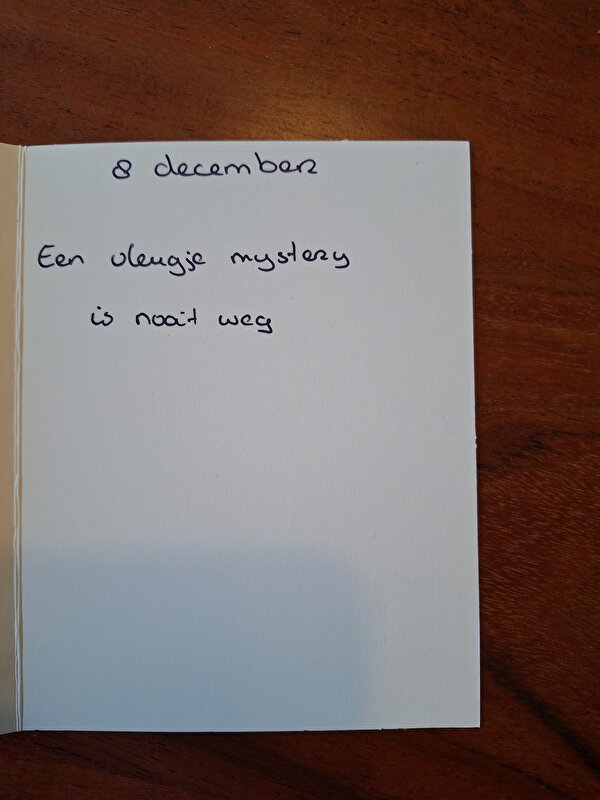 8 december
Een vleugje mystery
is nooit weg